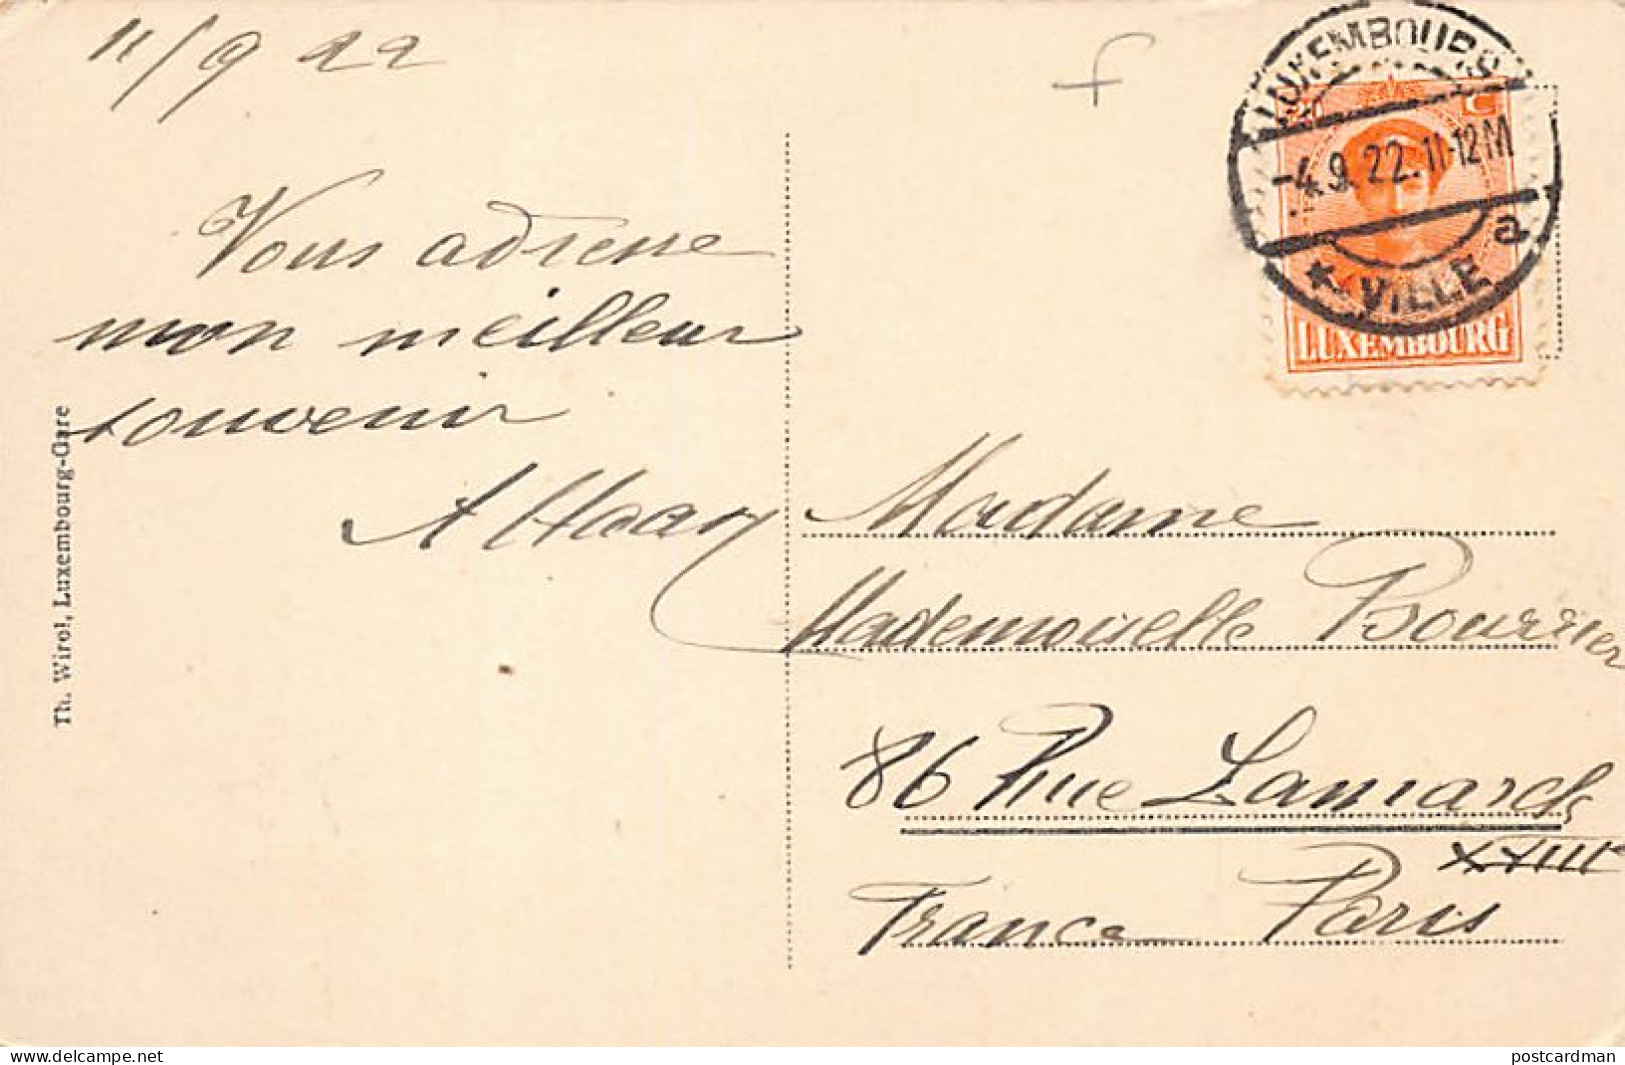 11/9 22
Vous adresse
mon meilleur
souvenir
A Haary
Th. Wirol, Luxembourg-Gare
LUXEMBOURG
-4.9.22.11-12M
a
* VILLE
C
LUXEMBOURG
Madame
Mademoiselle Bourrier
86 Rue Lamarck
XVIIIe
France Paris
delcampe.net
postcardman